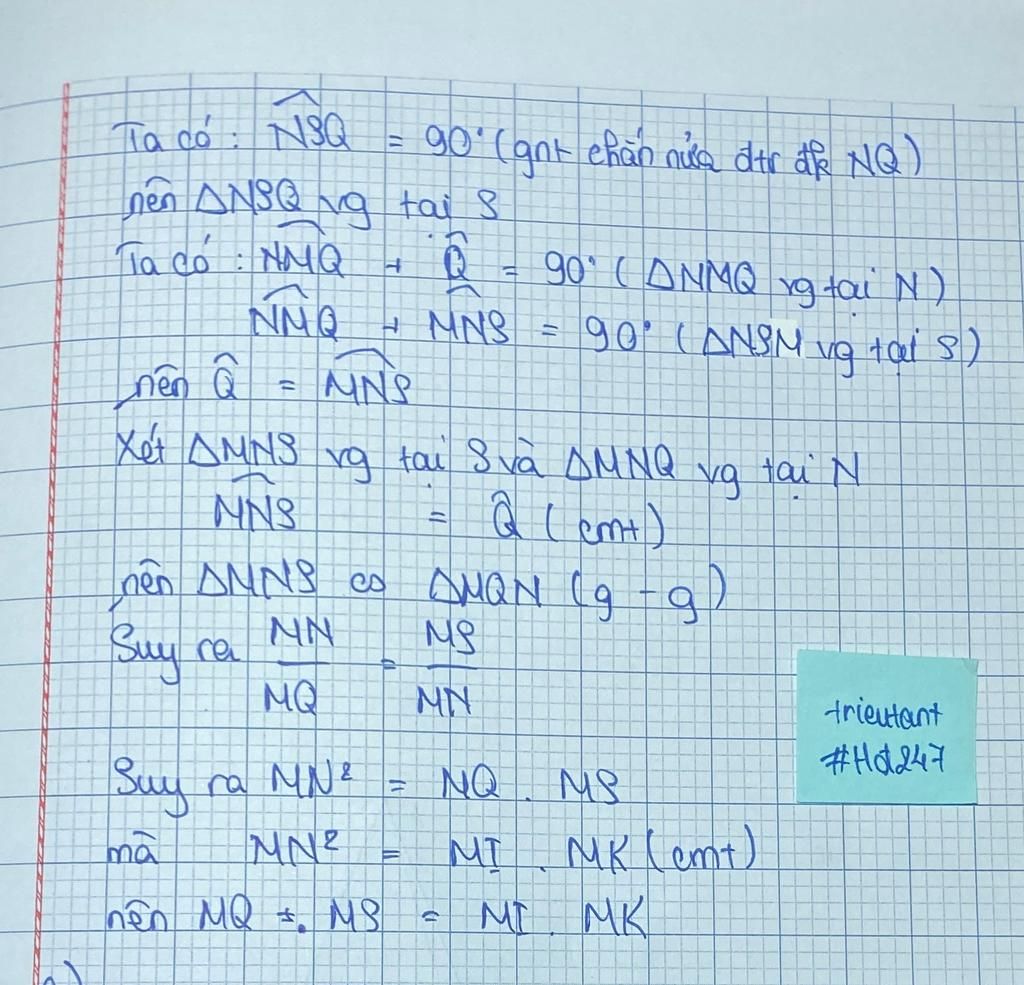 Ta có: $\widehat{NSQ}$ = 90° (gnt chắn nửa đtr đk NQ)
nên ΔNSQ vg tại S
Ta có: $\widehat{NMQ}$ + $\widehat{Q}$ = 90° (ΔNMQ vg tại N)
$\widehat{NMQ}$ + $\widehat{MNS}$ = 90° (ΔNSM vg tại S)
nên $\widehat{Q}$ = $\widehat{MNS}$
Xét ΔMNS vg tại S và ΔMNQ vg tại N
$\widehat{MNS}$ = $\widehat{Q}$ (cmt)
nên ΔMNS ∽ ΔMQN (g - g)
Suy ra $\frac{MN}{MQ}$ = $\frac{MS}{MN}$
trieutant
#Hd247
Suy ra MN² = MQ . MS
mà MN² = MI . MK (cmt)
nên MQ . MS = MI . MK